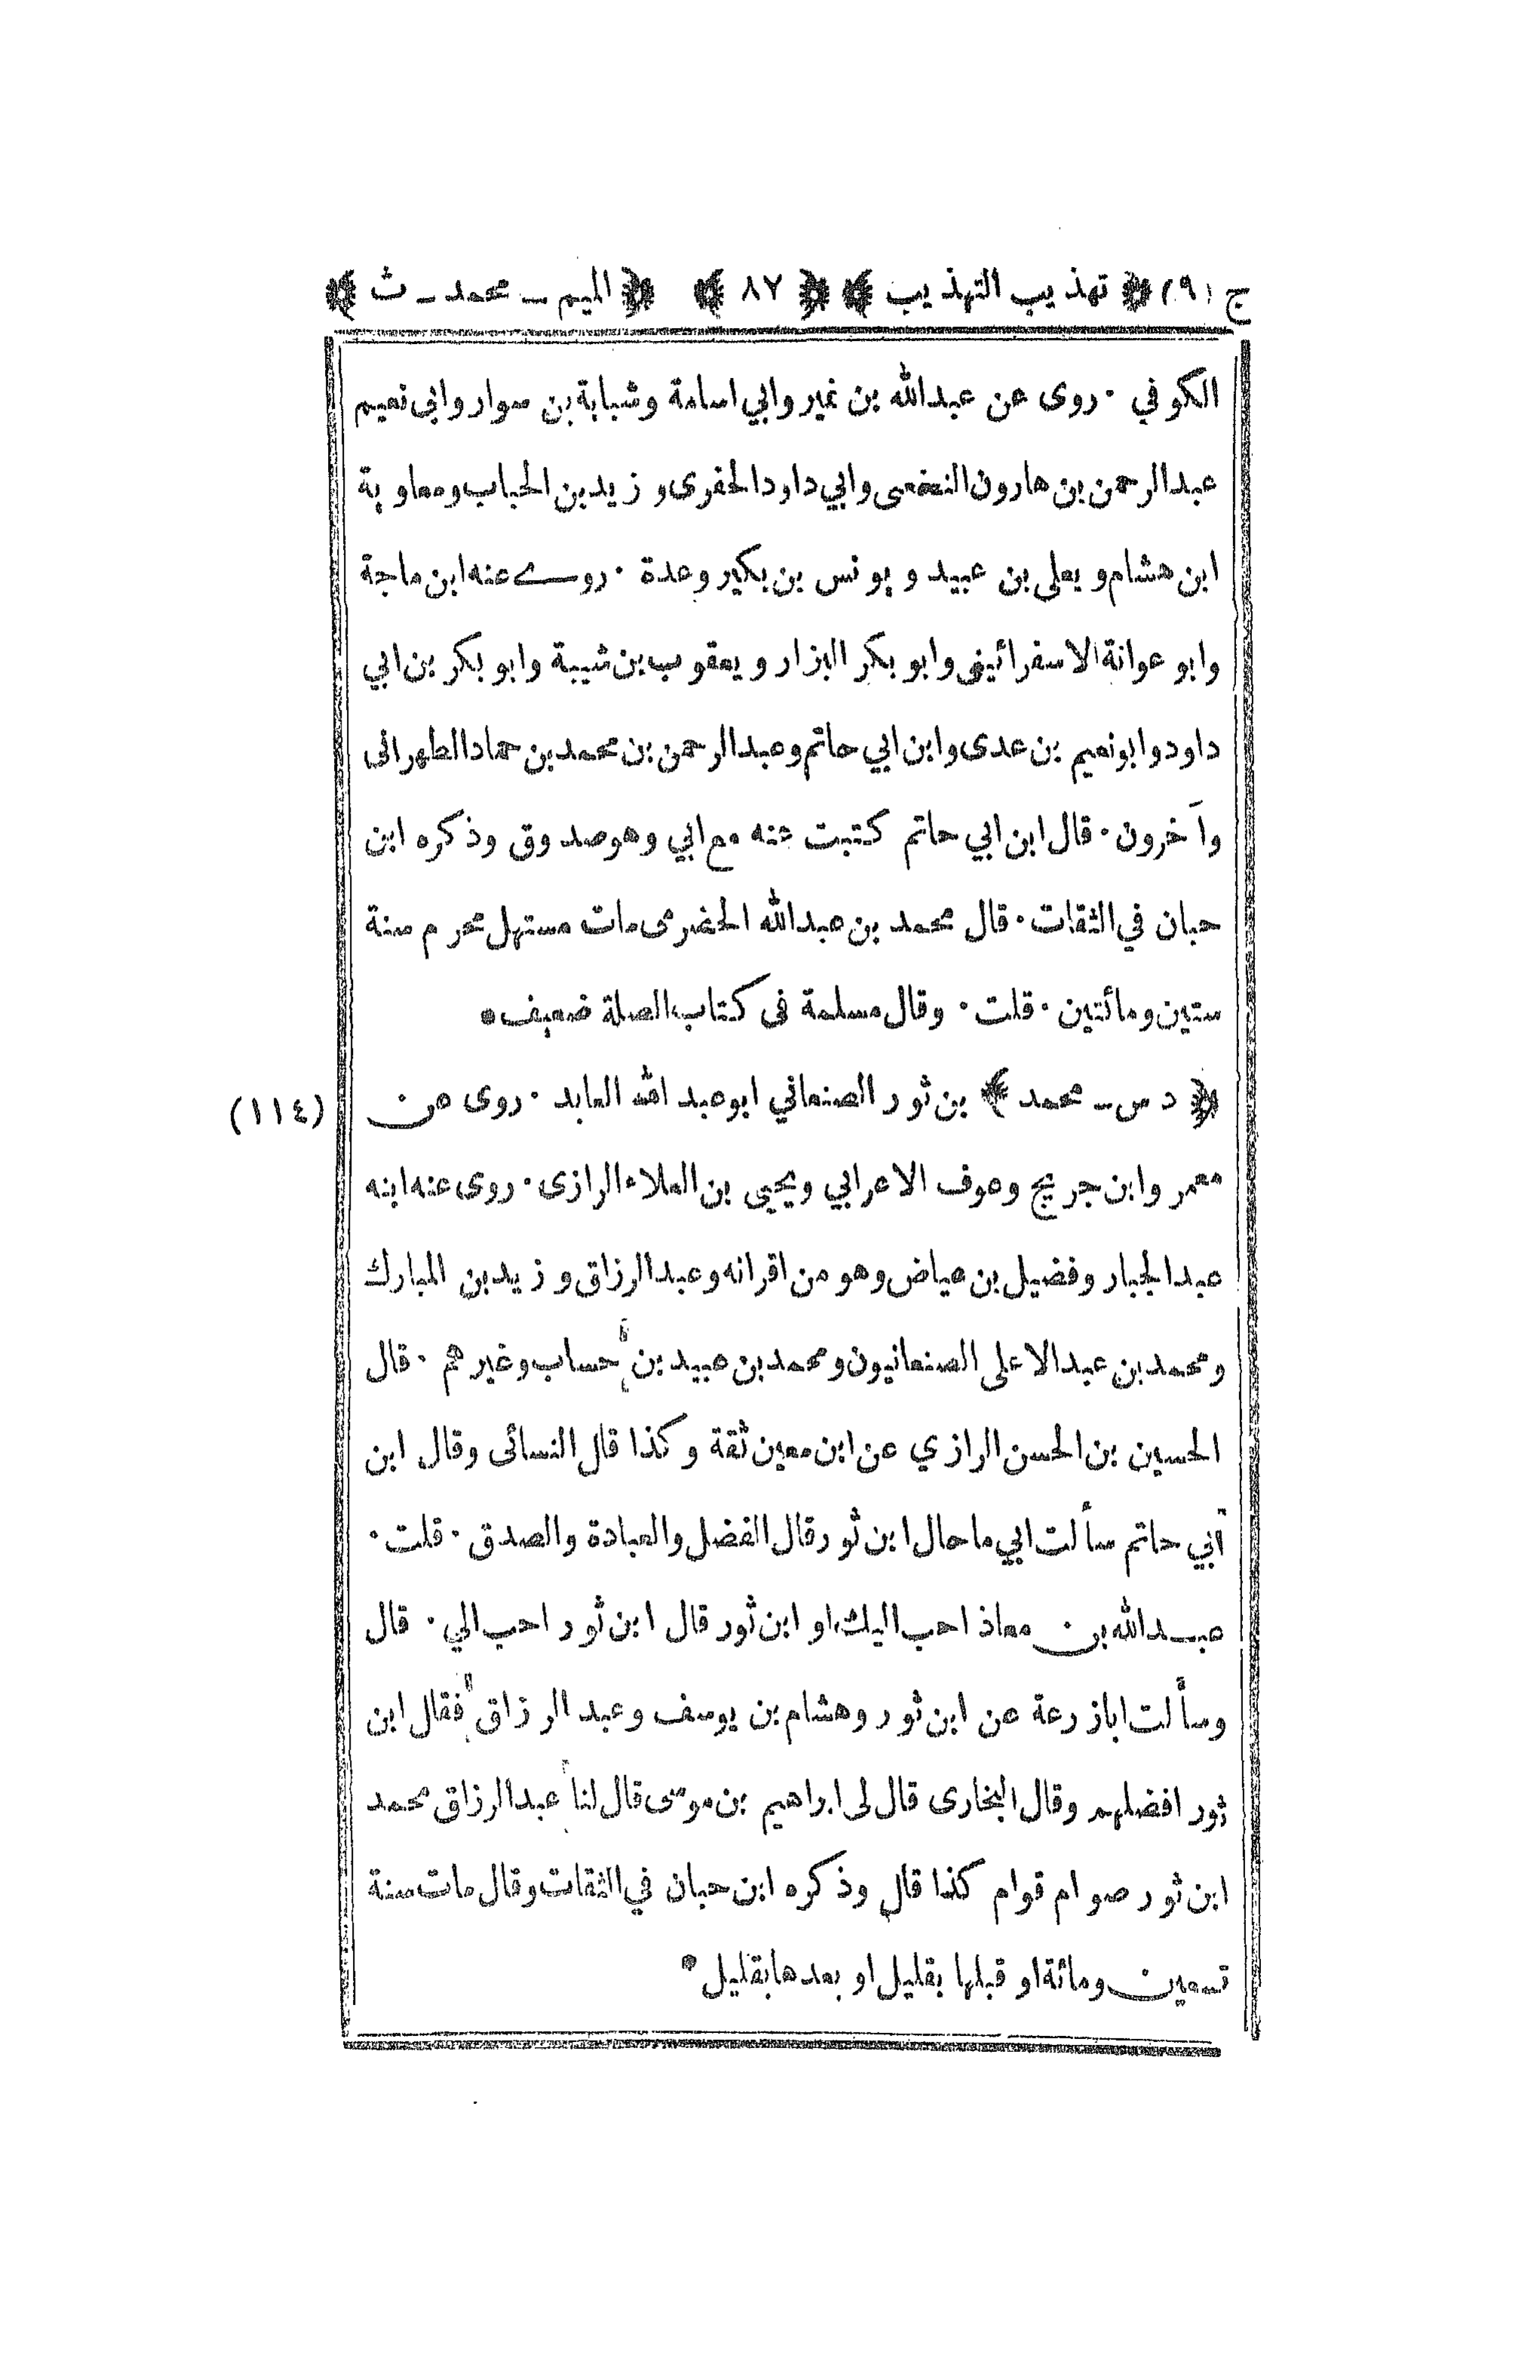 ج (٩) ﴿ تهذيب التهذيب ﴾ ﴿ ٨٧ ﴾ ﴿ الميم ــ محمد ــ ث ﴾
الكوفي ٠ روى عن عبدالله بن نمير وابي اسامة وشبابة بن سوار وابي نعيم
عبدالرحمن بن هارون النخعي وابي داود الحفرى وزيد بن الحباب ومعاوية
ابن هشام ويعلى بن عبيد ويونس بن بكير وعدة ٠ روى عنه ابن ماجة
وابو عوانة الاسفرائينى وابو بكر البزار ويعقوب بن شيبة وابو بكر بن ابي
داود وابونعيم بن عدى وابن ابي حاتم وعبدالرحمن بن محمد بن حماد الطهرانى
وآخرون ٠ قال ابن ابي حاتم كتبت عنه مع ابي وهو صدوق وذكره ابن
حبان في الثقات ٠ قال محمد بن عبدالله الحضرمى مات مستهل محرم سنة
ستين ومائتين ٠ قلت ٠ وقال مسلمة فى كتاب الصلة ضعيف •
﴿ د س ــ محمد ﴾ بن ثور الصنعاني ابو عبد الله العابد ٠ روى عن
(١١٤)
معمر وابن جريج وعوف الاعرابي ويحيى بن العلاء الرازى ٠ روى عنه ابنه
عبدالجبار وفضيل بن عياض وهو من اقرانه وعبدالرزاق وزيد بن المبارك
ومحمد بن عبدالاعلى الصنعانيون ومحمد بن عبيد بن حساب وغيرهم ٠ قال
الحسين بن الحسن الرازي عن ابن معين ثقة وكذا قال النسائى وقال ابن
أبي حاتم سألت ابي ما حال ابن ثور قال الفضل والعبادة والصدق ٠ قلت ٠
عبدالله بن معاذ احب اليك او ابن ثور قال ابن ثور احب الي ٠ قال
وسألت ابازرعة عن ابن ثور وهشام بن يوسف وعبد الرزاق فقال ابن
ثور افضلهم وقال البخارى قال لى ابراهيم بن موسى قال لنا عبدالرزاق محمد
ابن ثور صوام قوام كذا قال وذكره ابن حبان في الثقات وقال مات سنة
تسعين ومائة او قبلها بقليل او بعدها بقليل •